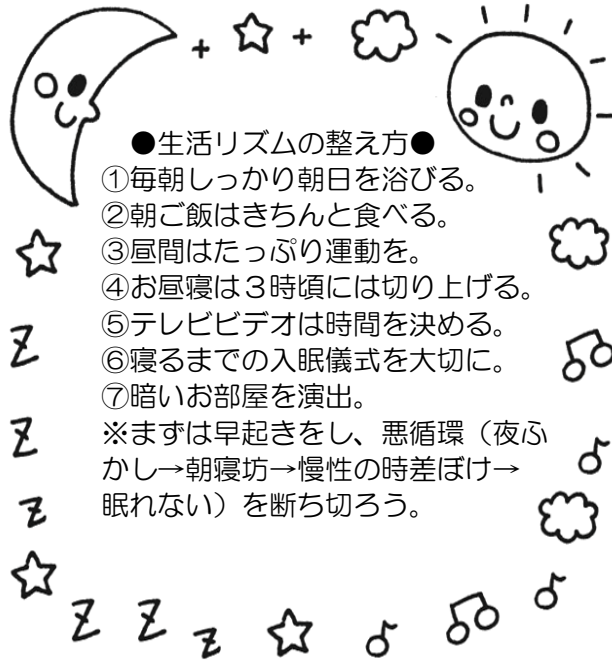 ●生活リズムの整え方●
①毎朝しっかり朝日を浴びる。
②朝ご飯はきちんと食べる。
③昼間はたっぷり運動を。
④お昼寝は３時頃には切り上げる。
⑤テレビビデオは時間を決める。
⑥寝るまでの入眠儀式を大切に。
⑦暗いお部屋を演出。
※まずは早起きをし、悪循環（夜ふ
かし→朝寝坊→慢性の時差ぼけ→
眠れない）を断ち切ろう。
Z
Z
Z
Z Z Z